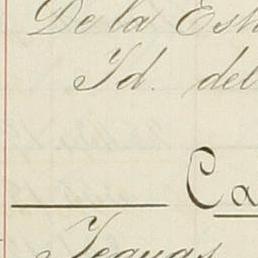 De la Est
Id. del
Ca
Yeguas